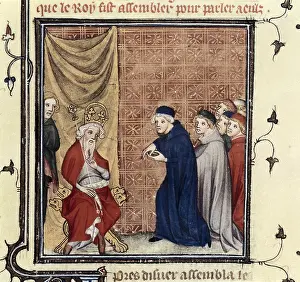 que le Roy fist assembler pour parler a eulz
Pres disner assembla le